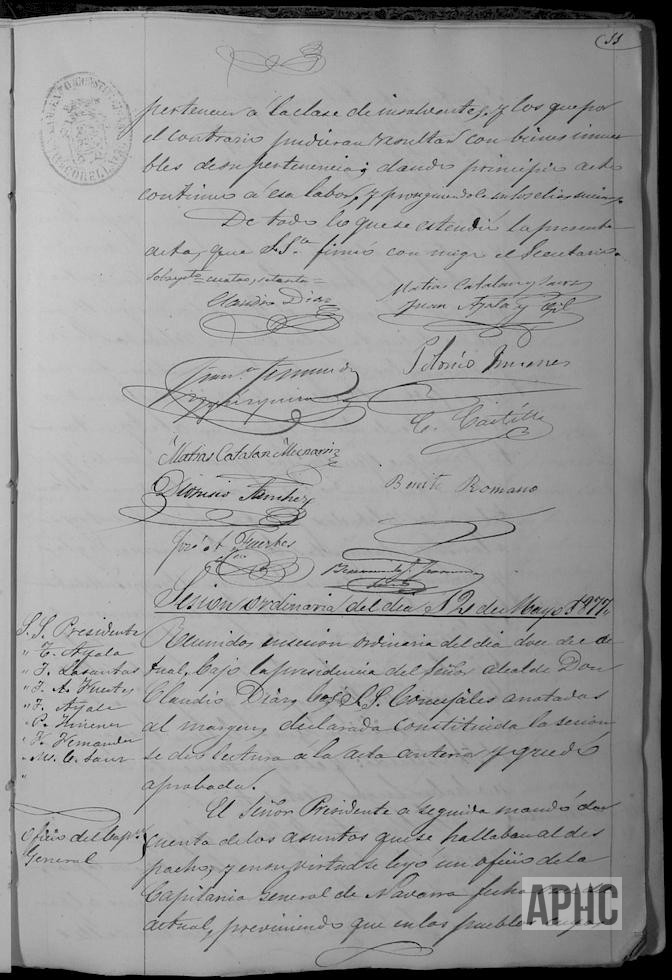 11
pertenecer a la clase de insolventes, y los que por
el contrario pudieran resultar con bienes inmue-
bles de su pertenencia; dando principio acto
continuo a esa labor, y prosiguiendola en los dias
De todo lo que se estendió la presente
acta, que S. Sª firmó con migo el Secretario.
Claudio Diaz
Matias Catalan y Sauz
Juan Ayala y Gil
Polonio Jimenez
C. Castillo
Matias Catalan
Dionisio Sanchez
Benito Romano
José A. Fuertes
Sesion ordinaria del dia 12 de Mayo 1877
S. S. Presidente
" T. Ayala
" J. Lasantas
" J. A. Fuertes
" J. Ayala
" P. Jimenez
" F. Fernandez
" M. C. Sauz
Reunidos en sesion ordinaria del dia doce de ac-
tual, bajo la presidencia del Señor alcalde Don
Claudio Diaz, los S.S. Concejales anotados
al margen, declarada constituida la sesion
se dió lectura a la acta anterior y quedó
aprobada.
Oficio del
General
El Señor Presidente a seguida mandó dar
cuenta de los asuntos que se hallaban al des-
pacho, y en su virtud se leyó un oficio de la
Capitania General de Navarra fecha
actual, previniendo que en los pueblos
APHC